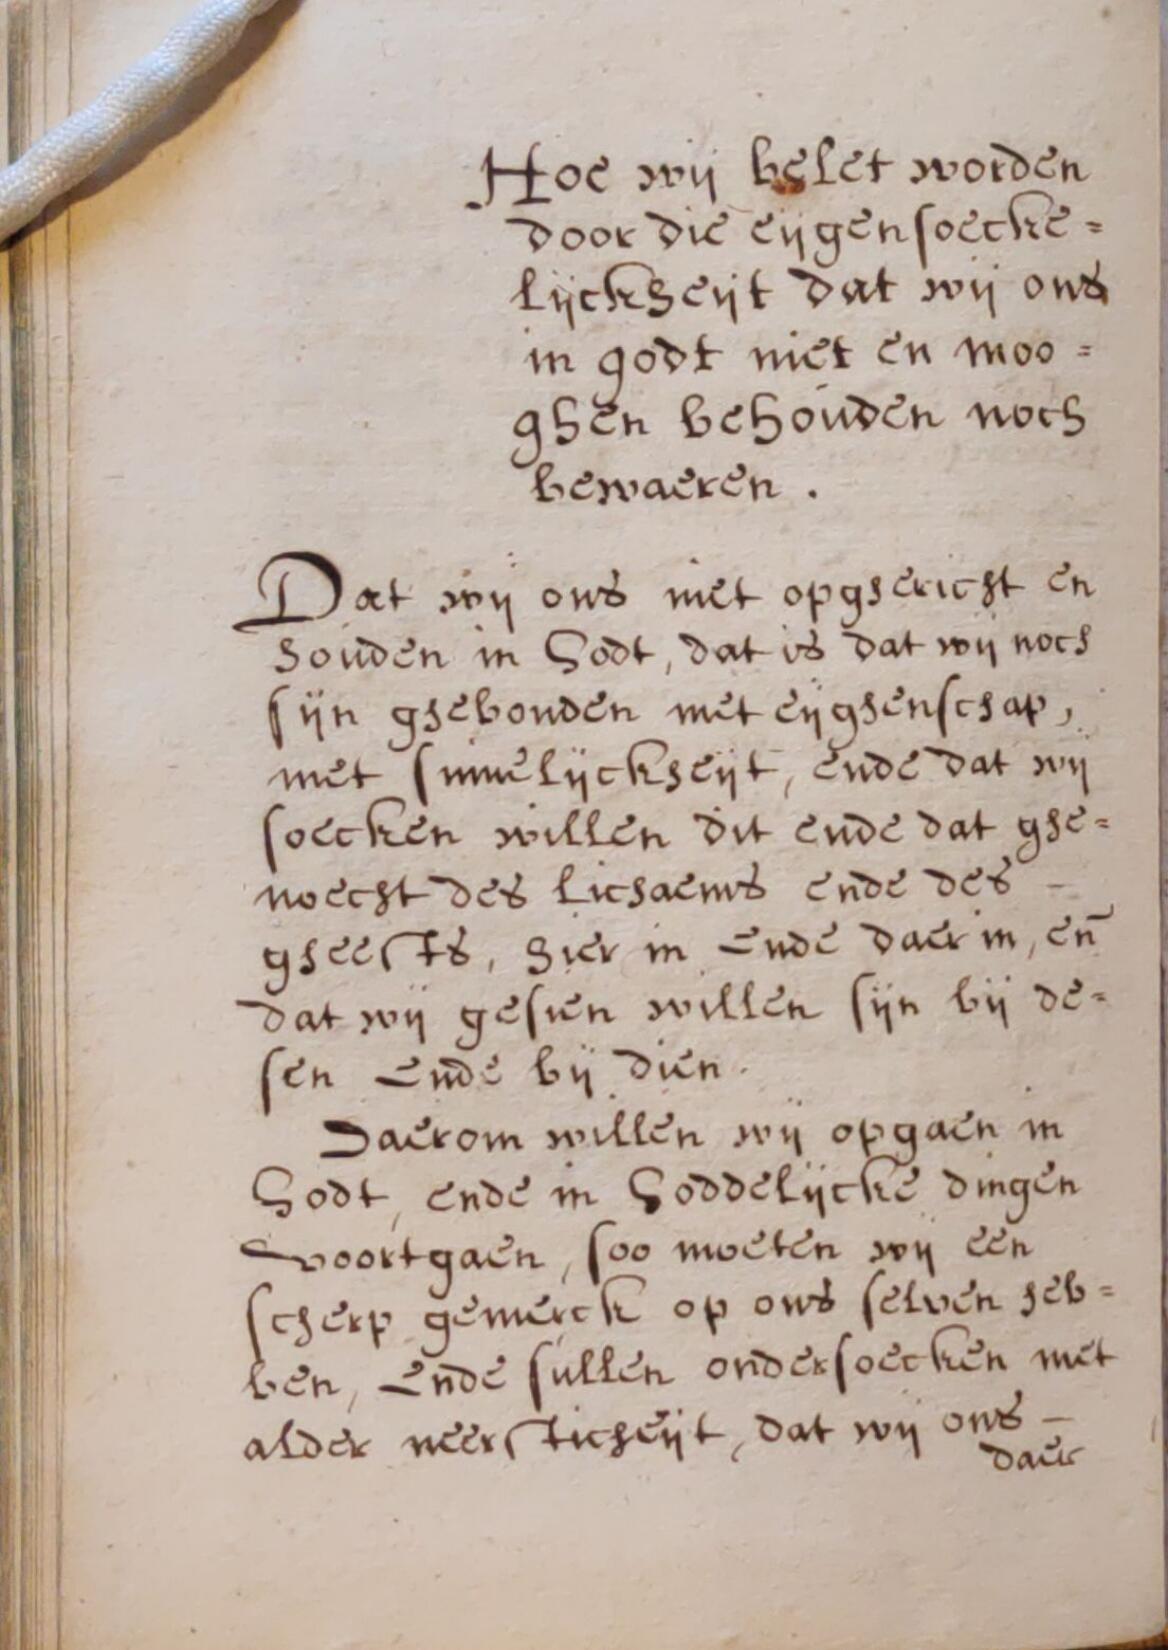 Hoe wij belet worden
door die eijgensoecke=
lijckheijt dat wij ons
in godt niet en moo=
ghen behouden noch
bewaeren.
Dat wij ons niet opghericht en
houden in Godt, dat is dat wij noch
sijn ghebonden met eijghenschap,
met sinnelijckheijt, ende dat wij
soecken willen dit ende dat ghe=
noecht des lichaems ende des –
gheests, hier in ende daer in, en̄
dat wij gesien willen sijn bij de=
sen ende bij dien.
Daerom willen wij opgaen in
Godt, ende in Goddelijcke dingen
voortgaen, soo moeten wij een
scherp gemerck op ons selven heb=
ben, ende sullen ondersoecken met
alder neersticheijt, dat wij ons –
daer